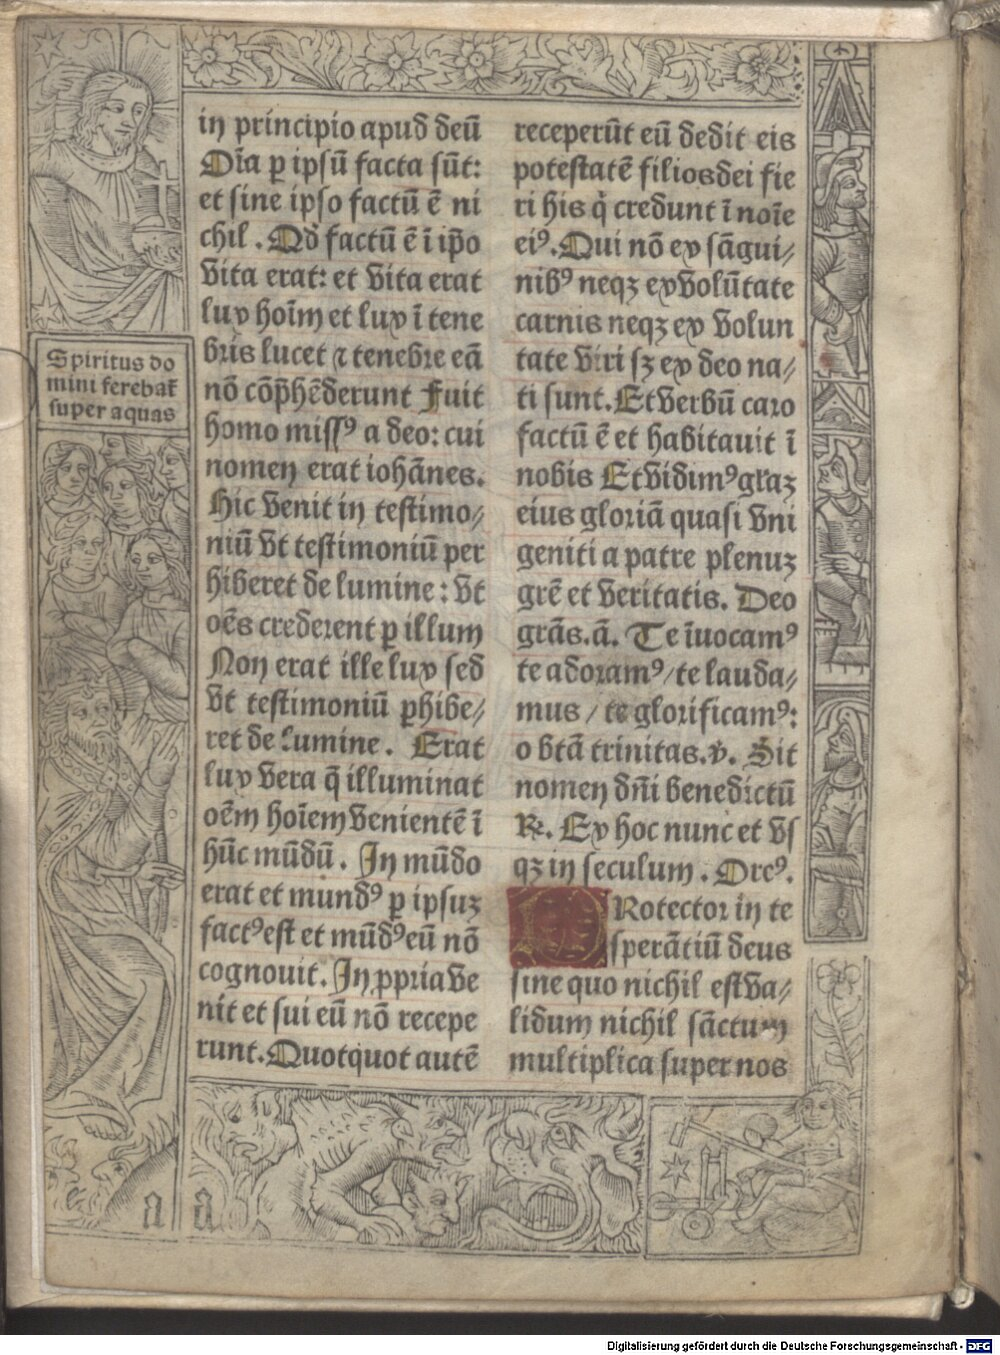 Spiritus do
mini ferebat᷑
super aquas
in principio apud deū
Oīa ꝑ ipsū facta sūt:
et sine ipso factū ē ni
chil. Qđ factū ē ī ip̄o
vita erat: et vita erat
lux hoīm et lux ī tene
bris lucet ⁊ tenebre eā
nō cōp̄hēderunt Fuit
homo missꝰ a deo: cui
nomen erat iohānes.
Hic venit in testimo⸗
niū vt testimoniū per
hiberet de lumine: vt
oēs crederent ꝑ illum
Non erat ille lux sed
vt testimoniū ꝑhibe⸗
ret de lumine. Erat
lux vera q̄ illuminat
oēm hoīem venientē ī
hūc mūdū. In mūdo
erat et mundꝰ ꝑ ipsuꝫ
factꝰ est et mūdꝰ eū nō
cognouit. In ꝓpria ve
nit et sui eū nō recepe
runt. Quotquot autē
receperūt eū dedit eis
potestatē filios dei fie
ri his q̇ credunt ī noīe
eiꝰ. Qui nō ex sāgui⸗
nibꝰ neqꝫ ex volūtate
carnis neqꝫ ex volun
tate viri sꝫ ex deo na⸗
ti sunt. Et verbū caro
factū ē et habitauit ī
nobis Et vidimꝰ gl'aꝫ
eius gloriā quasi vni
geniti a patre plenuꝫ
grē et veritatis. Deo
grās. ā. Te īuocamꝰ
te adoramꝰ/te lauda⸗
mus/te glorificamꝰ:
o btā trinitas. v. Sit
nomen dn̄i benedictū
℞. Ex hoc nunc et vs
qꝫ in seculum. Orcꝰ.
PRotector in te
sperātiū deus
sine quo nichil est va⸗
lidum nichil sāctum
multiplica super nos
a a
Digitalisierung gefördert durch die Deutsche Forschungsgemeinschaft - DFG